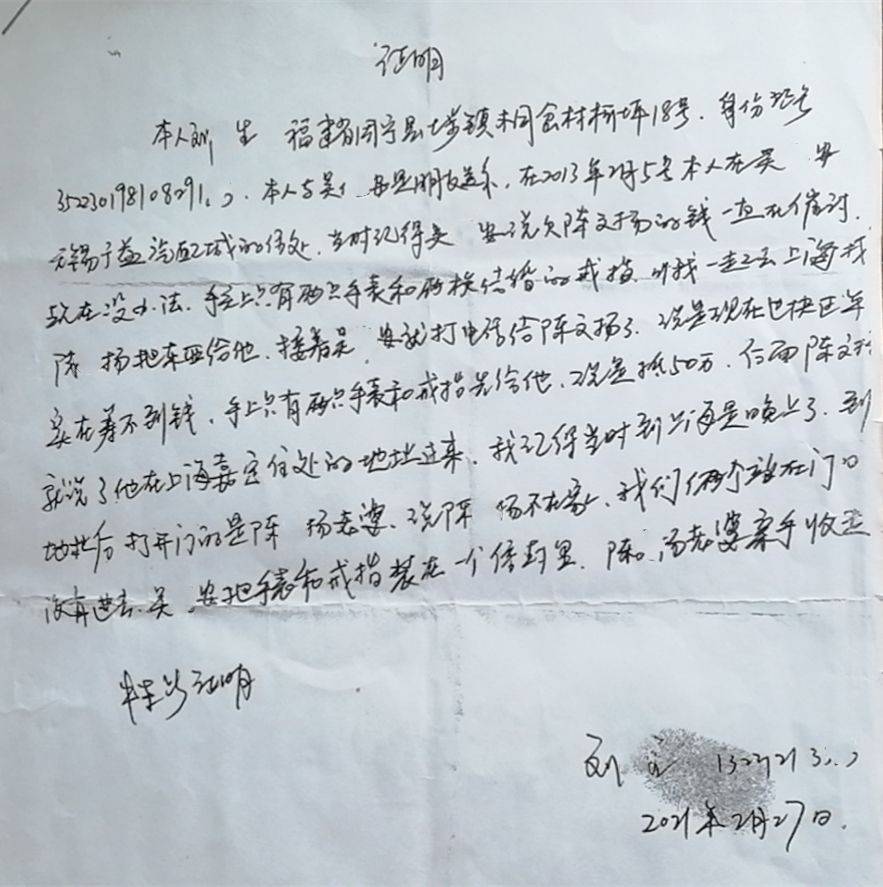 证明
本人刘 生 福建省周宁县七步镇 村 坪18号.身份证号
352230198108291 .本人与吴 安是朋友关系,在2013年2月5号本人在吴 安
无锡 益汽配城的住处.当时记得吴 安说欠陈文扬的钱一直在催讨.
现在没办法.手上只有两只手表和两枚结婚的戒指.叫我一起去上海找
陈 扬把东西给他.接着吴 安就打电话给陈文扬了.说是现在也快过年
实在筹不到钱,手上只有两只手表和戒指先给他.说是抵50万.后面陈文扬
就说了他在上海嘉定住处的地址过来.我记得当时到上海是晚上了.到
地址后打开门的是陈 扬老婆.说陈 扬不在家.我们俩个站在门口
没有进去.吴 安把手表和戒指装在一个信封里.陈 扬老婆亲手收走
特此证明
刘
2021年2月27日.